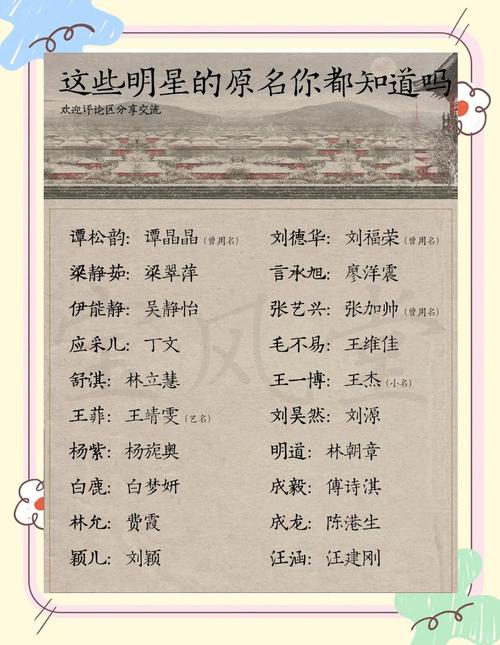 这些明星的原名你都知道吗
欢迎评论区分享交流
谭松韵：谭晶晶（曾用名） 刘德华：刘福荣（曾用名）
梁静茹：梁翠萍 言承旭：廖洋震
伊能静：吴静怡 张艺兴：张加帅（曾用名）
应采儿：丁文 毛不易：王维佳
舒淇：林立慧 王一博：王杰（小名）
王菲：王靖雯（艺名） 刘昊然：刘源
杨紫：杨旎奥 明道：林朝章
白鹿：白梦妍 成毅：傅诗淇
林允：费霞 成龙：陈港生
颖儿：刘颖 汪涵：汪建刚